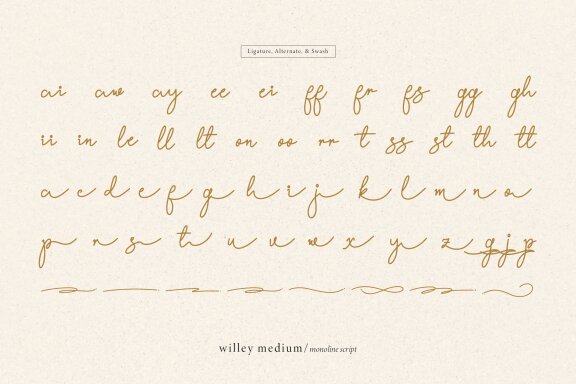 Ligature, Alternate, & Swash
ai aw ay ee ei ff fr fs gg gh
ii in le ll lt on oo rr t ss st th tt
a c d e f g h i j k l m n o
p r s t u v w x y z g j p
willey medium/monoline script